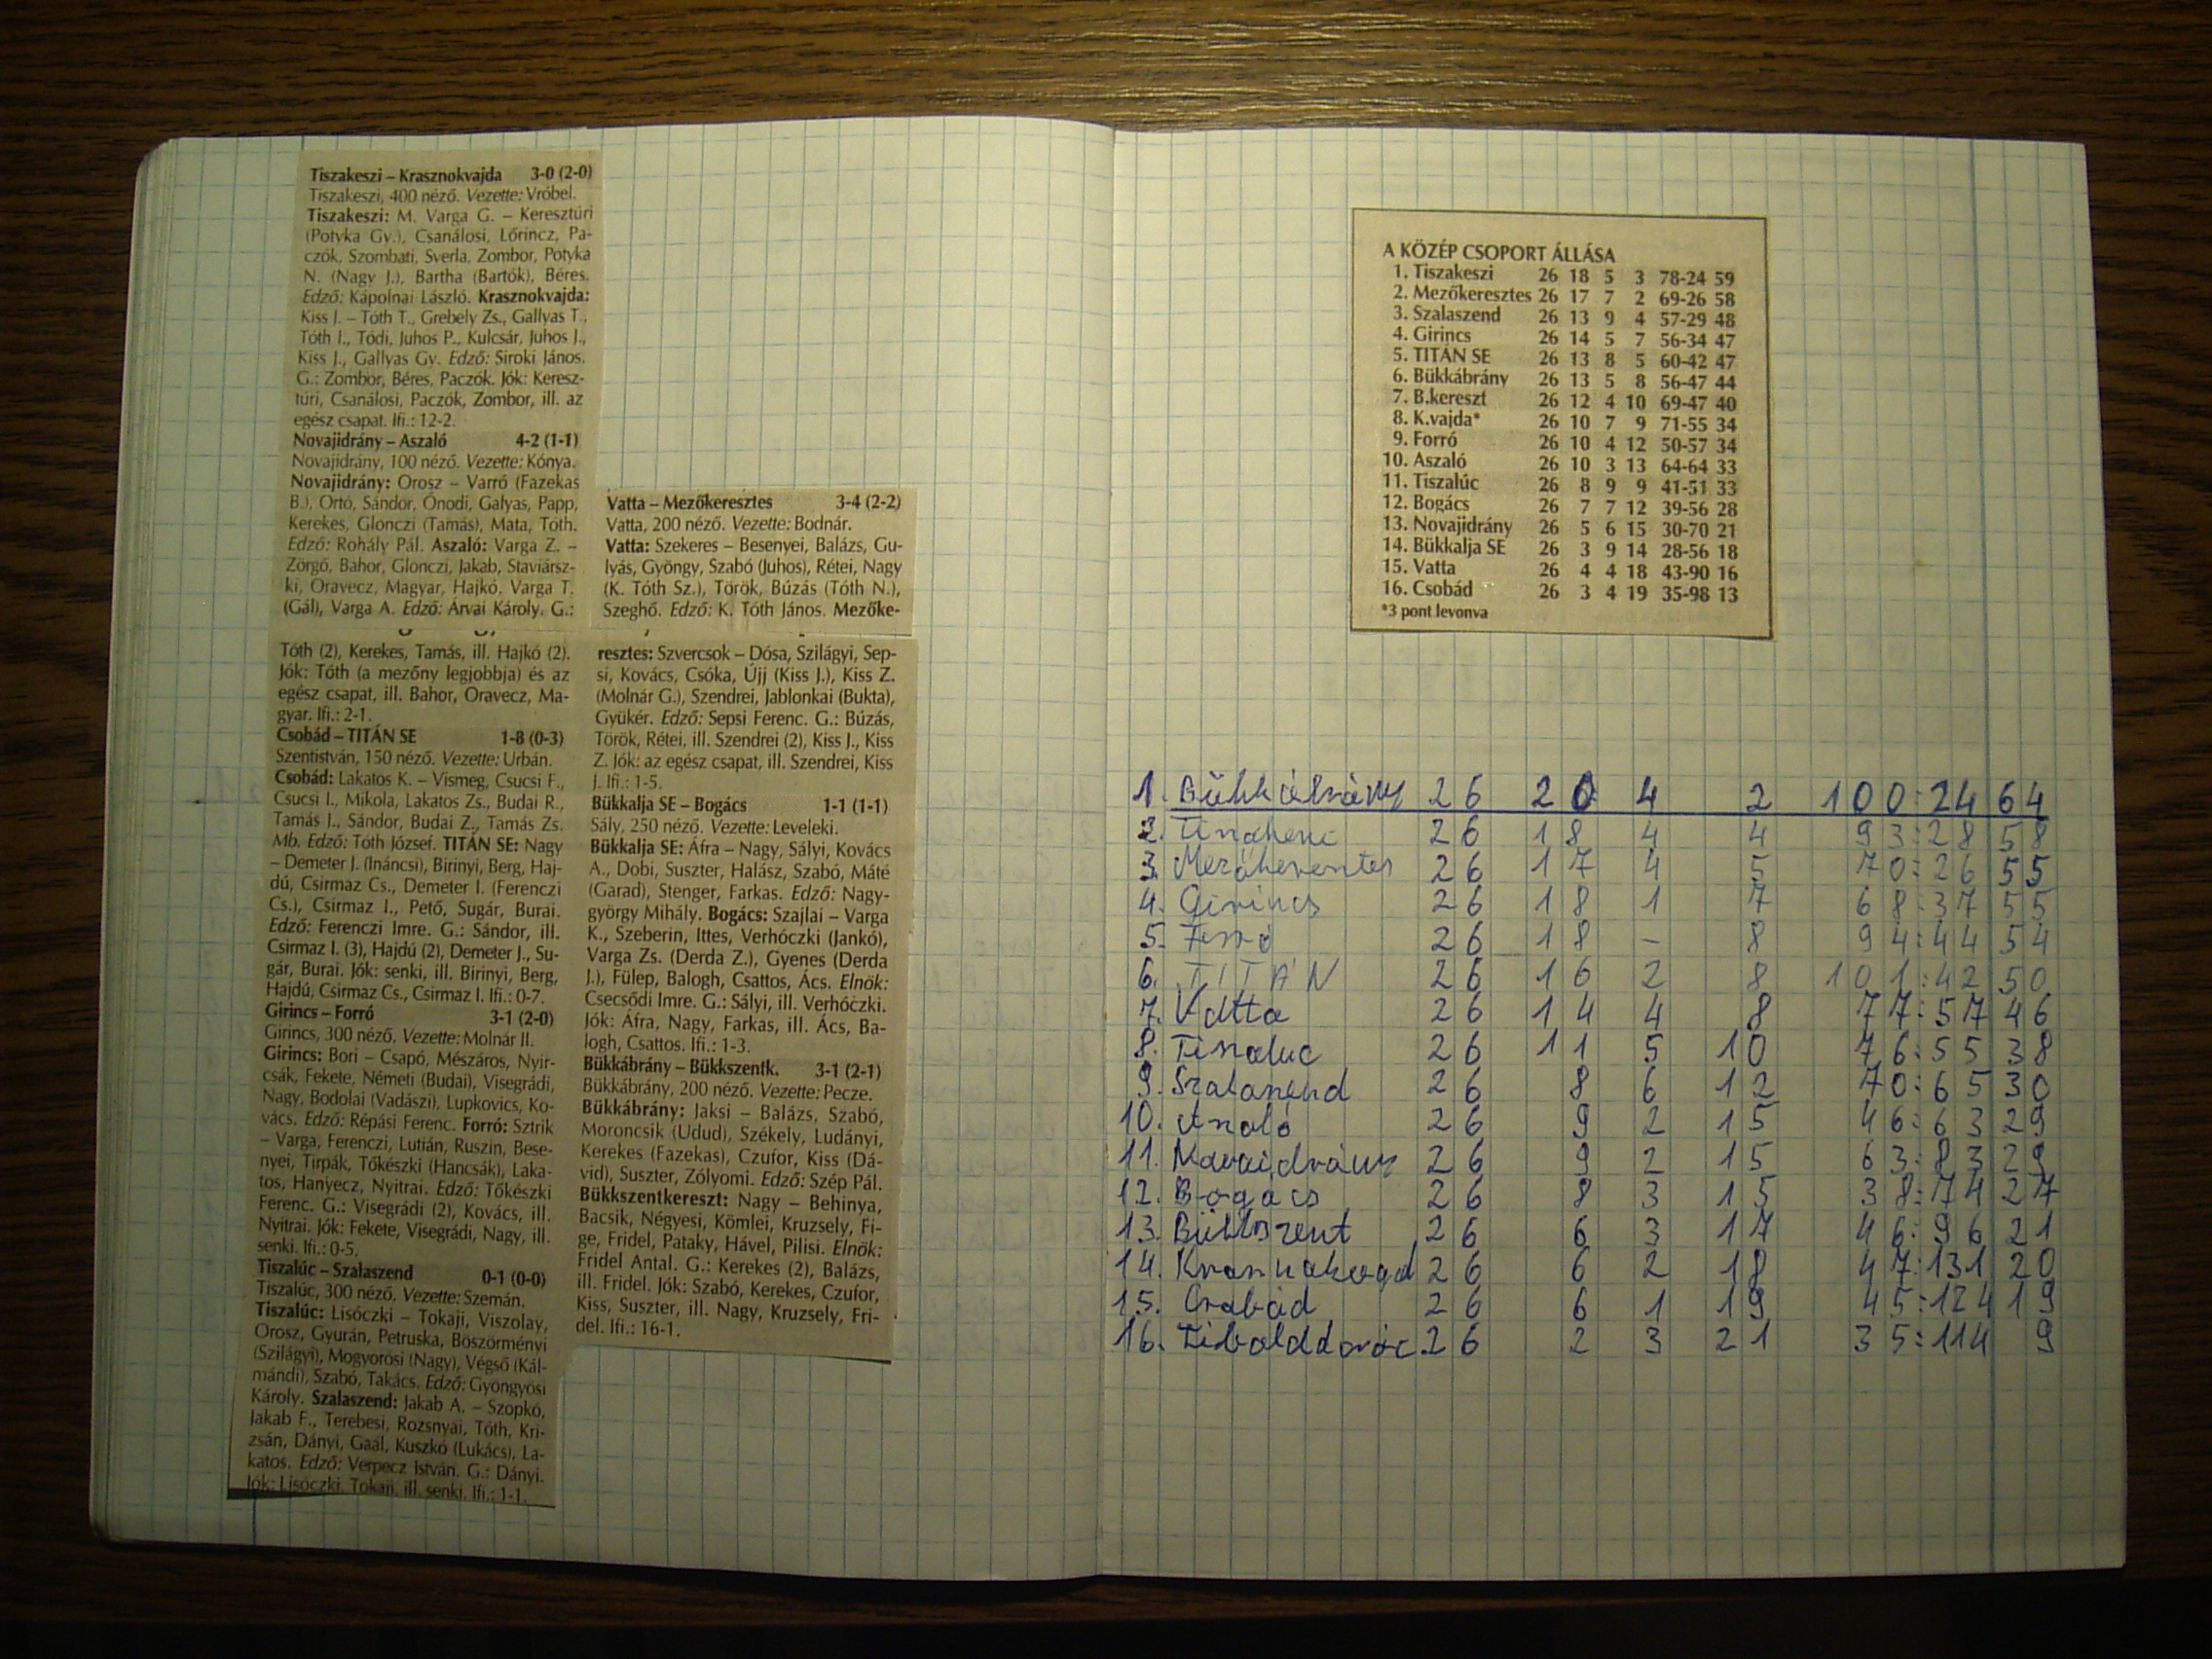 Tiszakeszi – Krasznokvajda 3-0 (2-0)
Tiszakeszi, 400 néző. Vezette: Vróbel.
Tiszakeszi: M. Varga G. – Keresztúri
(Potyka Gy.), Csanálosi, Lőrincz, Pa-
czók, Szombati, Sverla, Zombor, Potyka
N. (Nagy J.), Bartha (Bartók), Béres.
Edző: Kápolnai László. Krasznokvajda:
Kiss J. – Tóth T., Grebely Zs., Gallyas T.,
Tóth I., Tódi, Juhos P., Kulcsár, Juhos J.,
Kiss J., Gallyas Gy. Edző: Siroki János.
G.: Zombor, Béres, Paczók. Jók: Keresz-
túri, Csanálosi, Paczók, Zombor, ill. az
egész csapat. Ifi.: 12-2.
Novajidrány – Aszaló 4-2 (1-1)
Novajidrány, 100 néző. Vezette: Kónya.
Novajidrány: Orosz – Varró (Fazekas
B.), Ortó, Sándor, Ónodi, Galyas, Papp,
Kerekes, Glonczi (Tamás), Mata, Tóth.
Edző: Rohály Pál. Aszaló: Varga Z. –
Zörgő, Bahor, Glonczi, Jakab, Staviársz-
ki, Oravecz, Magyar, Hajkó, Varga T.
(Gál), Varga A. Edző: Árvai Károly. G.:
Tóth (2), Kerekes, Tamás, ill. Hajkó (2).
Jók: Tóth (a mezőny legjobbja) és az
egész csapat, ill. Bahor, Oravecz, Ma-
gyar. Ifi.: 2-1.
Csobád – TITÁN SE 1-8 (0-3)
Szentistván, 150 néző. Vezette: Urbán.
Csobád: Lakatos K. – Vismeg, Csucsi F.,
Csucsi I., Mikola, Lakatos Zs., Budai R.,
Tamás J., Sándor, Budai Z., Tamás Zs.
Mb. Edző: Tóth József. TITÁN SE: Nagy
– Demeter J. (Ináncsi), Birinyi, Berg, Haj-
dú, Csirmaz Cs., Demeter I. (Ferenczi
Cs.), Csirmaz I., Pető, Sugár, Burai.
Edző: Ferenczi Imre. G.: Sándor, ill.
Csirmaz I. (3), Hajdú (2), Demeter J., Su-
gár, Burai. Jók: senki, ill. Birinyi, Berg,
Hajdú, Csirmaz Cs., Csirmaz I. Ifi.: 0-7.
Girincs – Forró 3-1 (2-0)
Girincs, 300 néző. Vezette: Molnár II.
Girincs: Bori – Csapó, Mészáros, Nyir-
csák, Fekete, Németi (Budai), Visegrádi,
Nagy, Bodolai (Vadászi), Lupkovics, Ko-
vács. Edző: Répási Ferenc. Forró: Sztrik
– Varga, Ferenczi, Lutián, Ruszin, Bese-
nyei, Tirpák, Tőkészki (Hancsák), Laka-
tos, Hanyecz, Nyitrai. Edző: Tőkészki
Ferenc. G.: Visegrádi (2), Kovács, ill.
Nyitrai. Jók: Fekete, Visegrádi, Nagy, ill.
senki. Ifi.: 0-5.
Tiszalúc – Szalaszend 0-1 (0-0)
Tiszalúc, 300 néző. Vezette: Szemán.
Tiszalúc: Lisóczki – Tokaji, Viszolay,
Orosz, Gyurán, Petruska, Böszörményi
(Szilágyi), Mogyorósi (Nagy), Végső (Kál-
mándi), Szabó, Takács. Edző: Gyöngyösi
Károly. Szalaszend: Jakab A. – Szopkó,
Jakab F., Terebesi, Rozsnyai, Tóth, Kri-
zsán, Dányi, Gaál, Kuszkó (Lukács), La-
katos. Edző: Verpecz István. G.: Dányi.
Jók: Lisóczki, Tokaji, ill. senki. Ifi.: 1-1.
Vatta – Mezőkeresztes 3-4 (2-2)
Vatta, 200 néző. Vezette: Bodnár.
Vatta: Szekeres – Besenyei, Balázs, Gu-
lyás, Gyöngy, Szabó (Juhos), Rétei, Nagy
(K. Tóth Sz.), Török, Búzás (Tóth N.),
Szeghő. Edző: K. Tóth János. Mezőke-
resztes: Szvercsok – Dósa, Szilágyi, Sep-
si, Kovács, Csóka, Újj (Kiss J.), Kiss Z.
(Molnár G.), Szendrei, Jablonkai (Bukta),
Gyükér. Edző: Sepsi Ferenc. G.: Búzás,
Török, Rétei, ill. Szendrei (2), Kiss J., Kiss
Z. Jók: az egész csapat, ill. Szendrei, Kiss
J. Ifi.: 1-5.
Bükkalja SE – Bogács 1-1 (1-1)
Sály, 250 néző. Vezette: Leveleki.
Bükkalja SE: Áfra – Nagy, Sályi, Kovács
A., Dobi, Suszter, Halász, Szabó, Máté
(Garad), Stenger, Farkas. Edző: Nagy-
györgy Mihály. Bogács: Szajlai – Varga
K., Szeberin, Ittes, Verhóczki (Jankó),
Varga Zs. (Derda Z.), Gyenes (Derda
J.), Fülep, Balogh, Csattos, Ács. Elnök:
Csecsődi Imre. G.: Sályi, ill. Verhóczki.
Jók: Áfra, Nagy, Farkas, ill. Ács, Ba-
logh, Csattos. Ifi.: 1-3.
Bükkábrány – Bükkszentk. 3-1 (2-1)
Bükkábrány, 200 néző. Vezette: Pecze.
Bükkábrány: Jaksi – Balázs, Szabó,
Moroncsik (Udud), Székely, Ludányi,
Kerekes (Fazekas), Czufor, Kiss (Dá-
vid), Suszter, Zólyomi. Edző: Szép Pál.
Bükkszentkereszt: Nagy – Behinya,
Bacsik, Négyesi, Kömlei, Kruzsely, Fi-
ge, Fridel, Pataky, Hável, Pilisi. Elnök:
Fridel Antal. G.: Kerekes (2), Balázs,
ill. Fridel. Jók: Szabó, Kerekes, Czufor,
Kiss, Suszter, ill. Nagy, Kruzsely, Fri-
del. Ifi.: 16-1.
A KÖZÉP CSOPORT ÁLLÁSA
1. Tiszakeszi 26 18 5 3 78-24 59
2. Mezőkeresztes 26 17 7 2 69-26 58
3. Szalaszend 26 13 9 4 57-29 48
4. Girincs 26 14 5 7 56-34 47
5. TITÁN SE 26 13 8 5 60-42 47
6. Bükkábrány 26 13 5 8 56-47 44
7. B.kereszt 26 12 4 10 69-47 40
8. K.vajda* 26 10 7 9 71-55 34
9. Forró 26 10 4 12 50-57 34
10. Aszaló 26 10 3 13 64-64 33
11. Tiszalúc 26 8 9 9 41-51 33
12. Bogács 26 7 7 12 39-56 28
13. Novajidrány 26 5 6 15 30-70 21
14. Bükkalja SE 26 3 9 14 28-56 18
15. Vatta 26 4 4 18 43-90 16
16. Csobád 26 3 4 19 35-98 13
*3 pont levonva
1. Bükkábrány 26 20 4 2 100:24 64
2. 26 18 4 4 93:28 58
3. Mezőkeresztes 26 17 4 5 70:26 55
4. Girincs 26 18 1 7 68:37 55
5. Forró 26 18 - 8 94:44 54
6. TITÁN 26 16 2 8 101:42 50
7. Vatta 26 14 4 8 77:57 46
8. Tiszaluc 26 11 5 10 76:55 38
9. Szalaszend 26 8 6 12 70:65 30
10. Aszaló 26 9 2 15 46:63 29
11. Novajidrány 26 9 2 15 63:83 29
12. Bogács 26 8 3 15 38:74 27
13. Bükkszent 26 6 3 17 46:96 21
14. 26 6 2 18 47:131 20
15. Csobád 26 6 1 19 45:124 19
16. Tibolddaróc 26 2 3 21 35:114 9